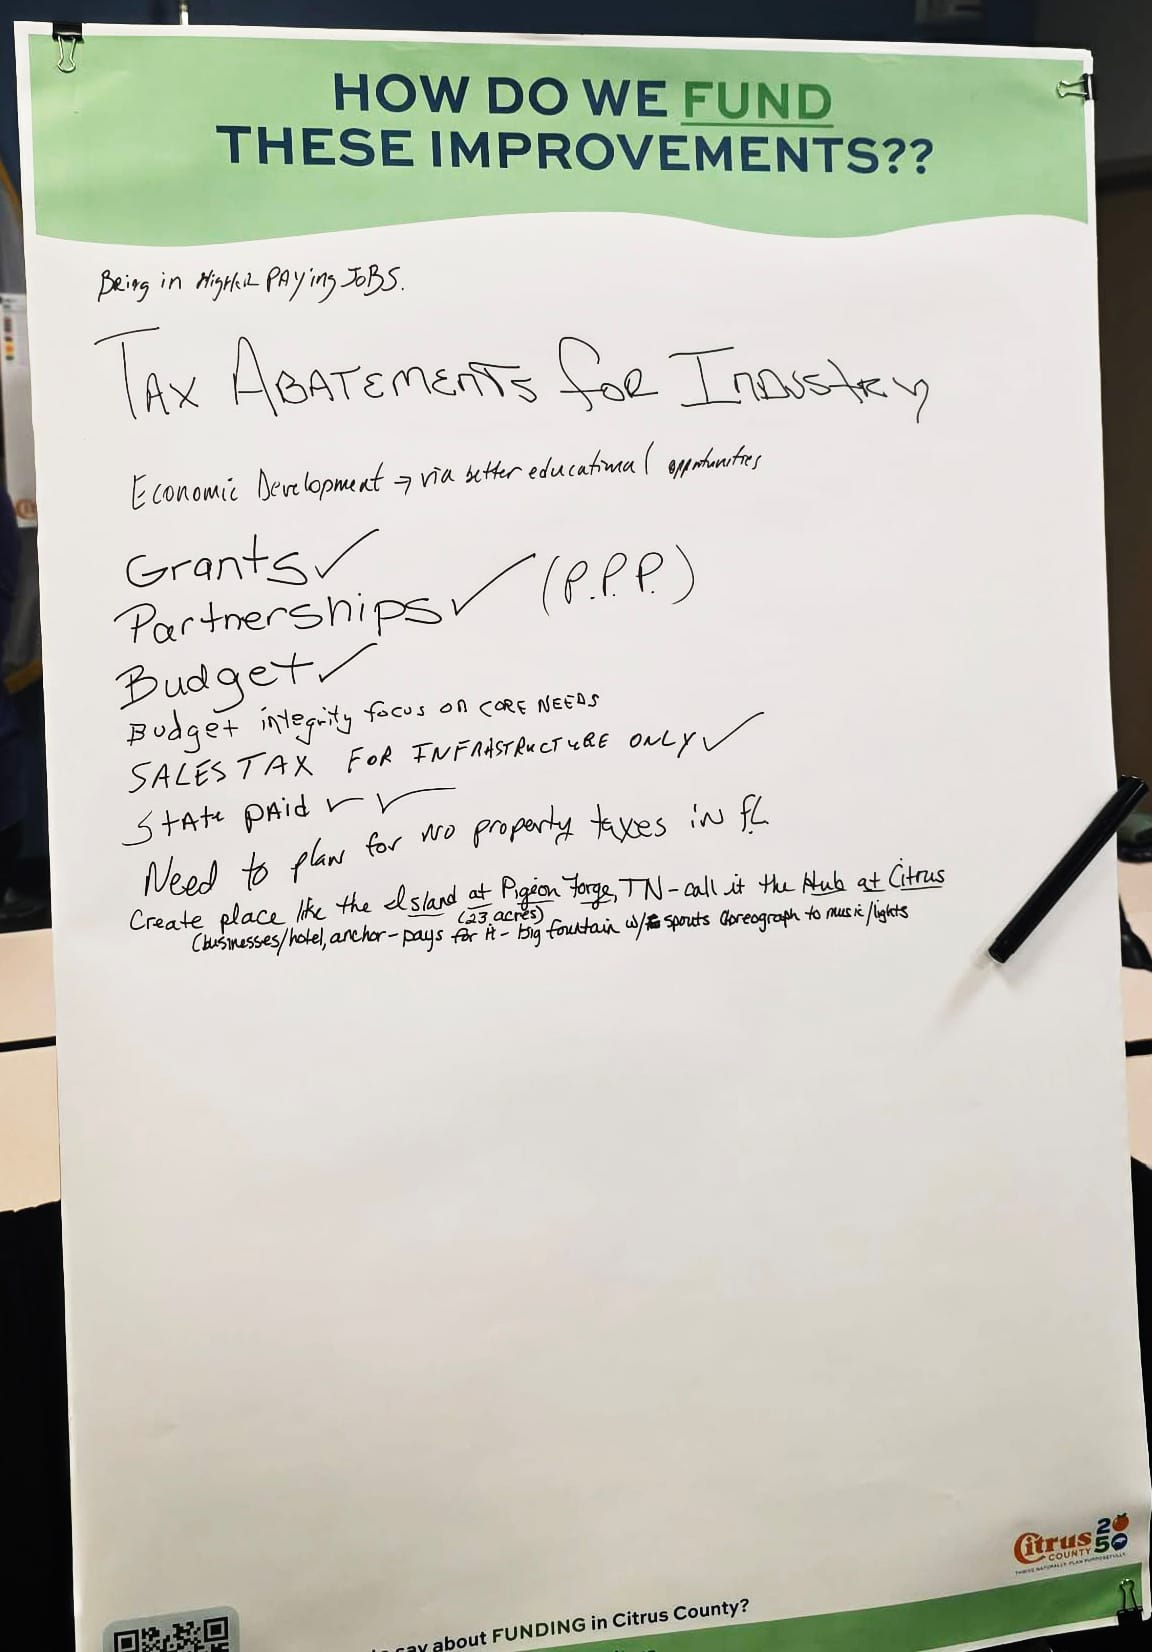 HOW DO WE FUND
THESE IMPROVEMENTS??
Bring in Higher PAying JoBS.
TAX ABATEMENTS for INDUStRy
Economic Development → via better educational opportunities
Grants ✓
Partnerships ✓ (P.P.P.)
Budget ✓
Budget integrity focus on CORE NEEDS
SALES TAX FOR INFRASTRUCTURE ONLY ✓
StAte pAid ✓ ✓
Need to plan for no property taxes in fL
Create place like the Island at Pigeon Forge, TN - call it the Hub at Citrus
(23 acres)
(businesses/hotel, anchor - pays for it - big fountain w/ spouts Choreograph to music/lights
Citrus
COUNTY
2050
THRIVE NATURALLY. PLAN PURPOSEFULLY.
say about FUNDING in Citrus County?